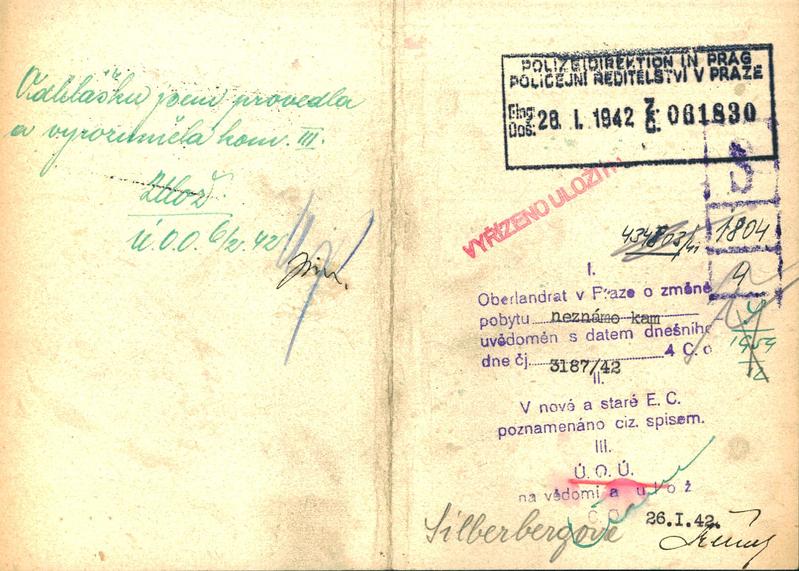 Odhlášku jsem provedla
a vyrozuměla kom. III.
Ulož
ú O.O. 6/2. 42
POLIZEIDIREKTION IN PRAG
POLICEJNÍ ŘEDITELSTVÍ V PRAZE
Eing.
Doš. 28. I. 1942 Z. Č. 061830
VYŘÍZENO ULOŽIT
3
1804
9
1959
I.
Oberlandrat v Praze o změně
pobytu neznámo kam
uvědoměn s datem dnešního
dne čj. 3187/42 4 C. o
II.
V nové a staré E. C.
poznamenáno ciz. spisem.
III.
Ú. O. Ú.
na vědomí a ulož
26.I.42.
Silberbergové